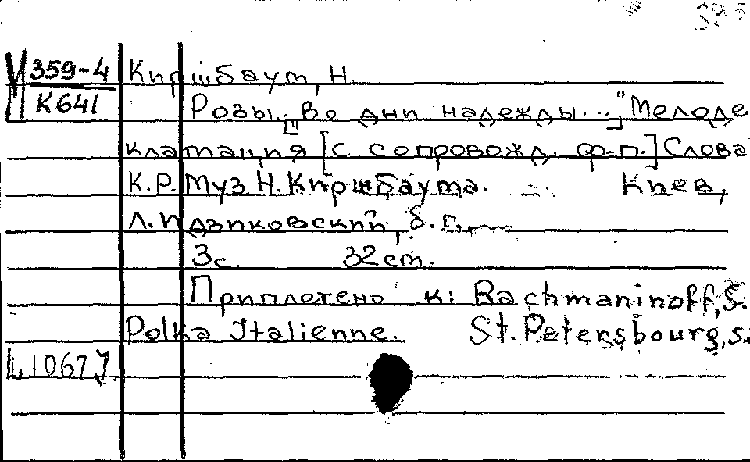 359-4 Киршбаум, Н.
К641 Розы. „Во дни надежды..." Мелоде-
кламация [с сопровожд. ф-п.] Слова
К.Р. Муз. Н. Киршбаума. Киев,
Л. Идзиковский, б.г.
3с. 32 cm.
Приложено к: Rachmaninoff, S.
Polka Italienne. St. Petersbourg, s.
1067